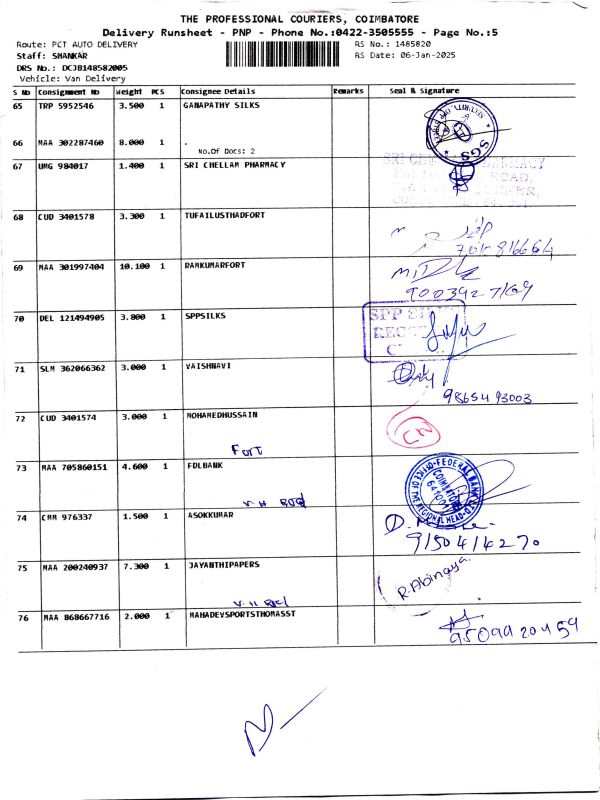 THE PROFESSIONAL COURIERS, COIMBATORE
Delivery Runsheet - PNP - Phone No.:0422-3505555 - Page No.:5
Route: PCT AUTO DELIVERY
RS No.: 1485820
Staff: SHANKAR
RS Date: 06-Jan-2025
DRS No.: DCJB148582005
Vehicle: Van Delivery
S No Consignment No Weight PCS Consignee Details Remarks Seal & Signature
65 TRP 5952546 3.500 1 GANAPATHY SILKS
SGS
66 MAA 302287460 8.000 1 .
No.Of Docs: 2
67 UMG 984017 1.400 1 SRI CHELLAM PHARMACY
68 CUD 3401578 3.300 1 TUFAILUSTHADFORT
69 MAA 301997404 10.100 1 RAMKUMARFORT
70 DEL 121494905 3.800 1 SPPSILKS
SPP
71 SLM 362066362 3.000 1 VAISHNAVI
9865493003
72 CUD 3401574 3.000 1 MOHAMEDHUSSAIN
Fort
CN
73 MAA 705860151 4.600 1 FDLBANK
FEDERAL BANK LTD
OFFICE OF THE REGIONAL HEAD
COIMBATORE
74 CMM 976337 1.500 1 ASOKKUMAR
9150414270
75 MAA 200240937 7.300 1 JAYANTHIPAPERS
R.Abinaya
76 MAA 868667716 2.000 1 MAHADEVSPORTSTHOMASST